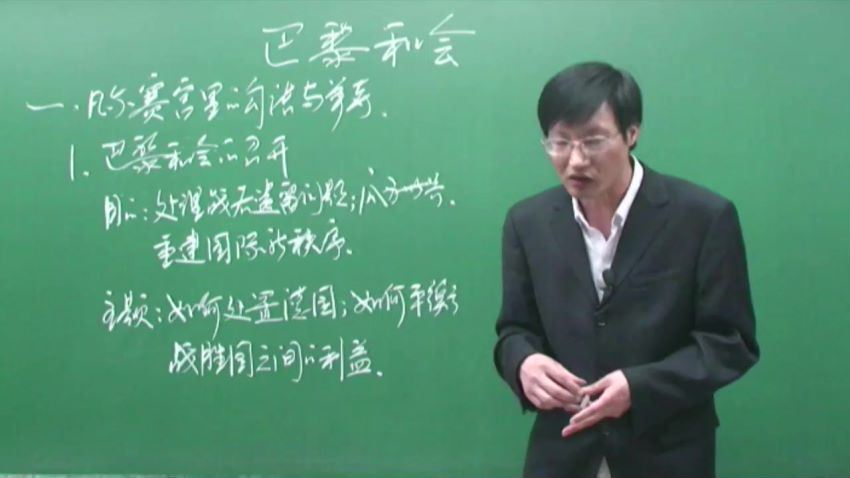 巴黎和会
一、凡尔赛宫里的勾结与争夺.
1. 巴黎和会的召开
目的:处理战后遗留问题;瓜分
重建国际新秩序.
主题:如何处置德国;如何平衡
战胜国之间的利益.